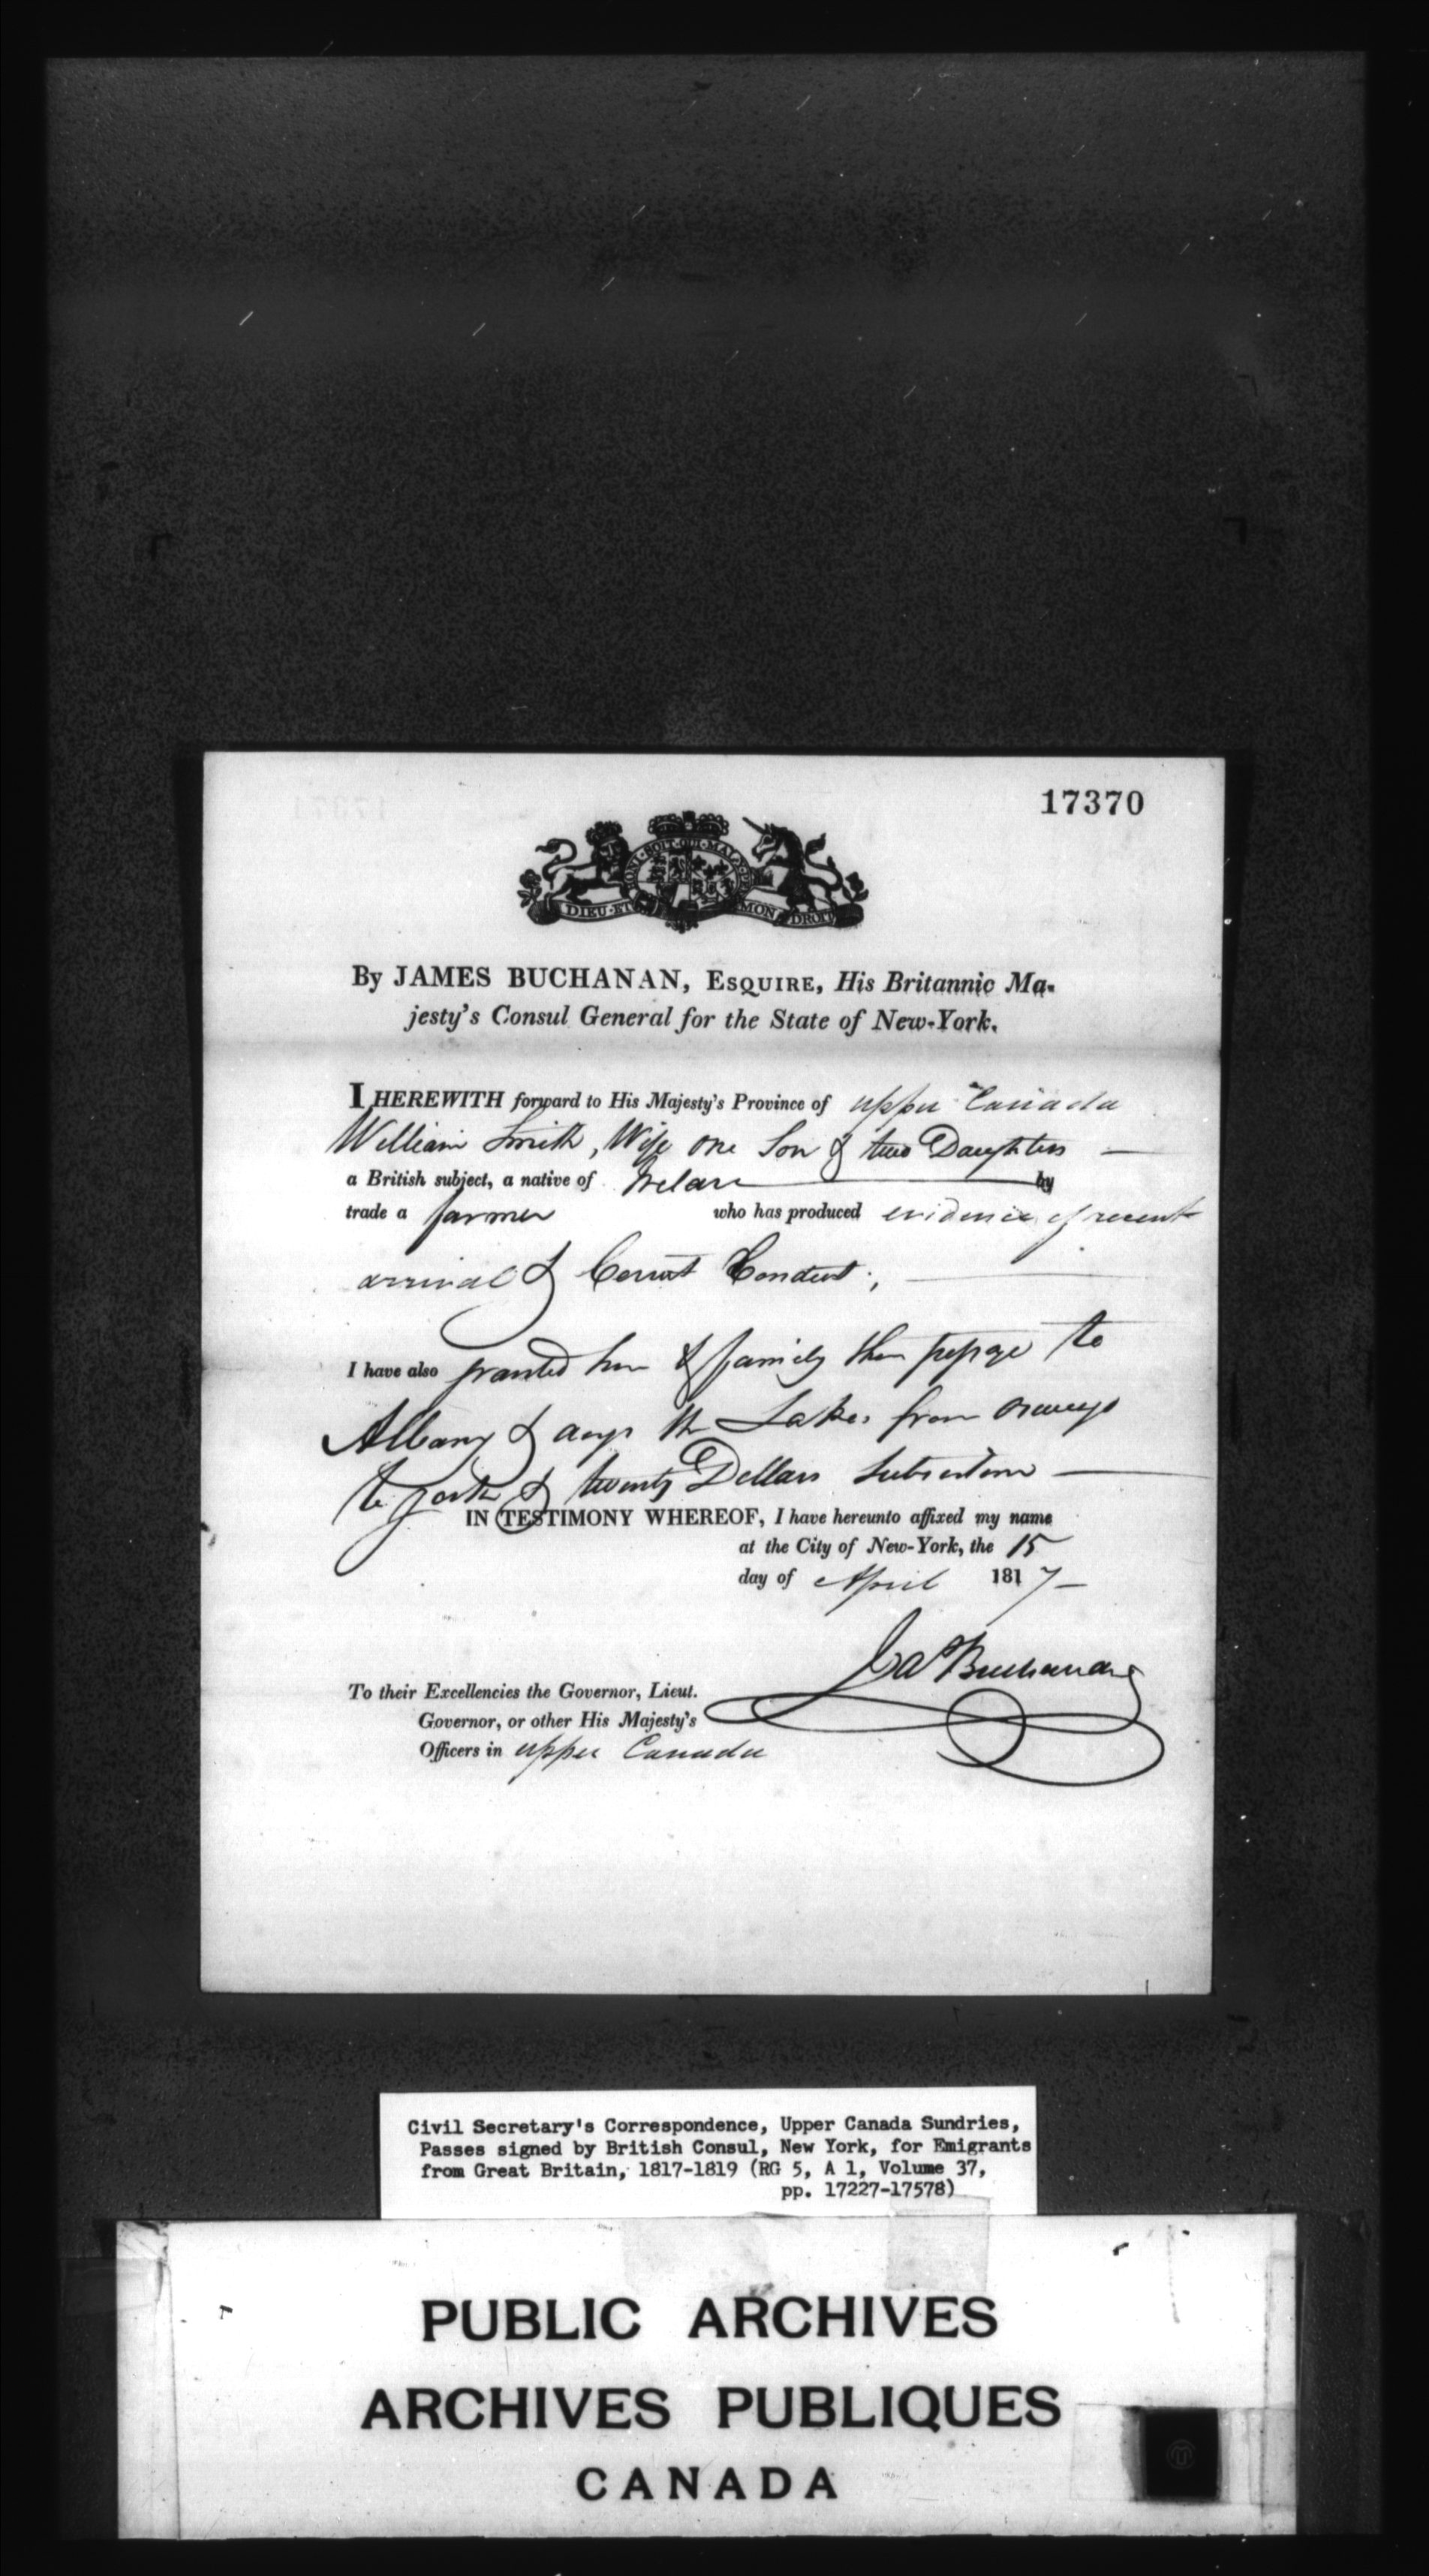 17370
HONI·SOIT·QUI·MAL·
DIEU·ET MON DROIT
By JAMES BUCHANAN, ESQUIRE, His Britannic Ma-
jesty's Consul General for the State of New-York.
I HEREWITH forward to His Majesty's Province of Upper Canada
William Smith, Wife one Son & two Daughters —
a British subject, a native of Irelan by
trade a farmer who has produced evidence of recent
arrival & Corret Conduct;
I have also granted him & family then passage to
Albany & acrss the Lakes from Oswego
to york & twenty Dollars —
IN TESTIMONY WHEREOF, I have hereunto affixed my name
at the City of New-York, the 15
day of April 1817 —
Jas Buchanan
To their Excellencies the Governor, Lieut.
Governor, or other His Majesty's
Officers in Upper Canada
Civil Secretary's Correspondence, Upper Canada Sundries,
Passes signed by British Consul, New York, for Emigrants
from Great Britain, 1817-1819 (RG 5, A 1, Volume 37,
pp. 17227-17578)
PUBLIC ARCHIVES
ARCHIVES PUBLIQUES
CANADA